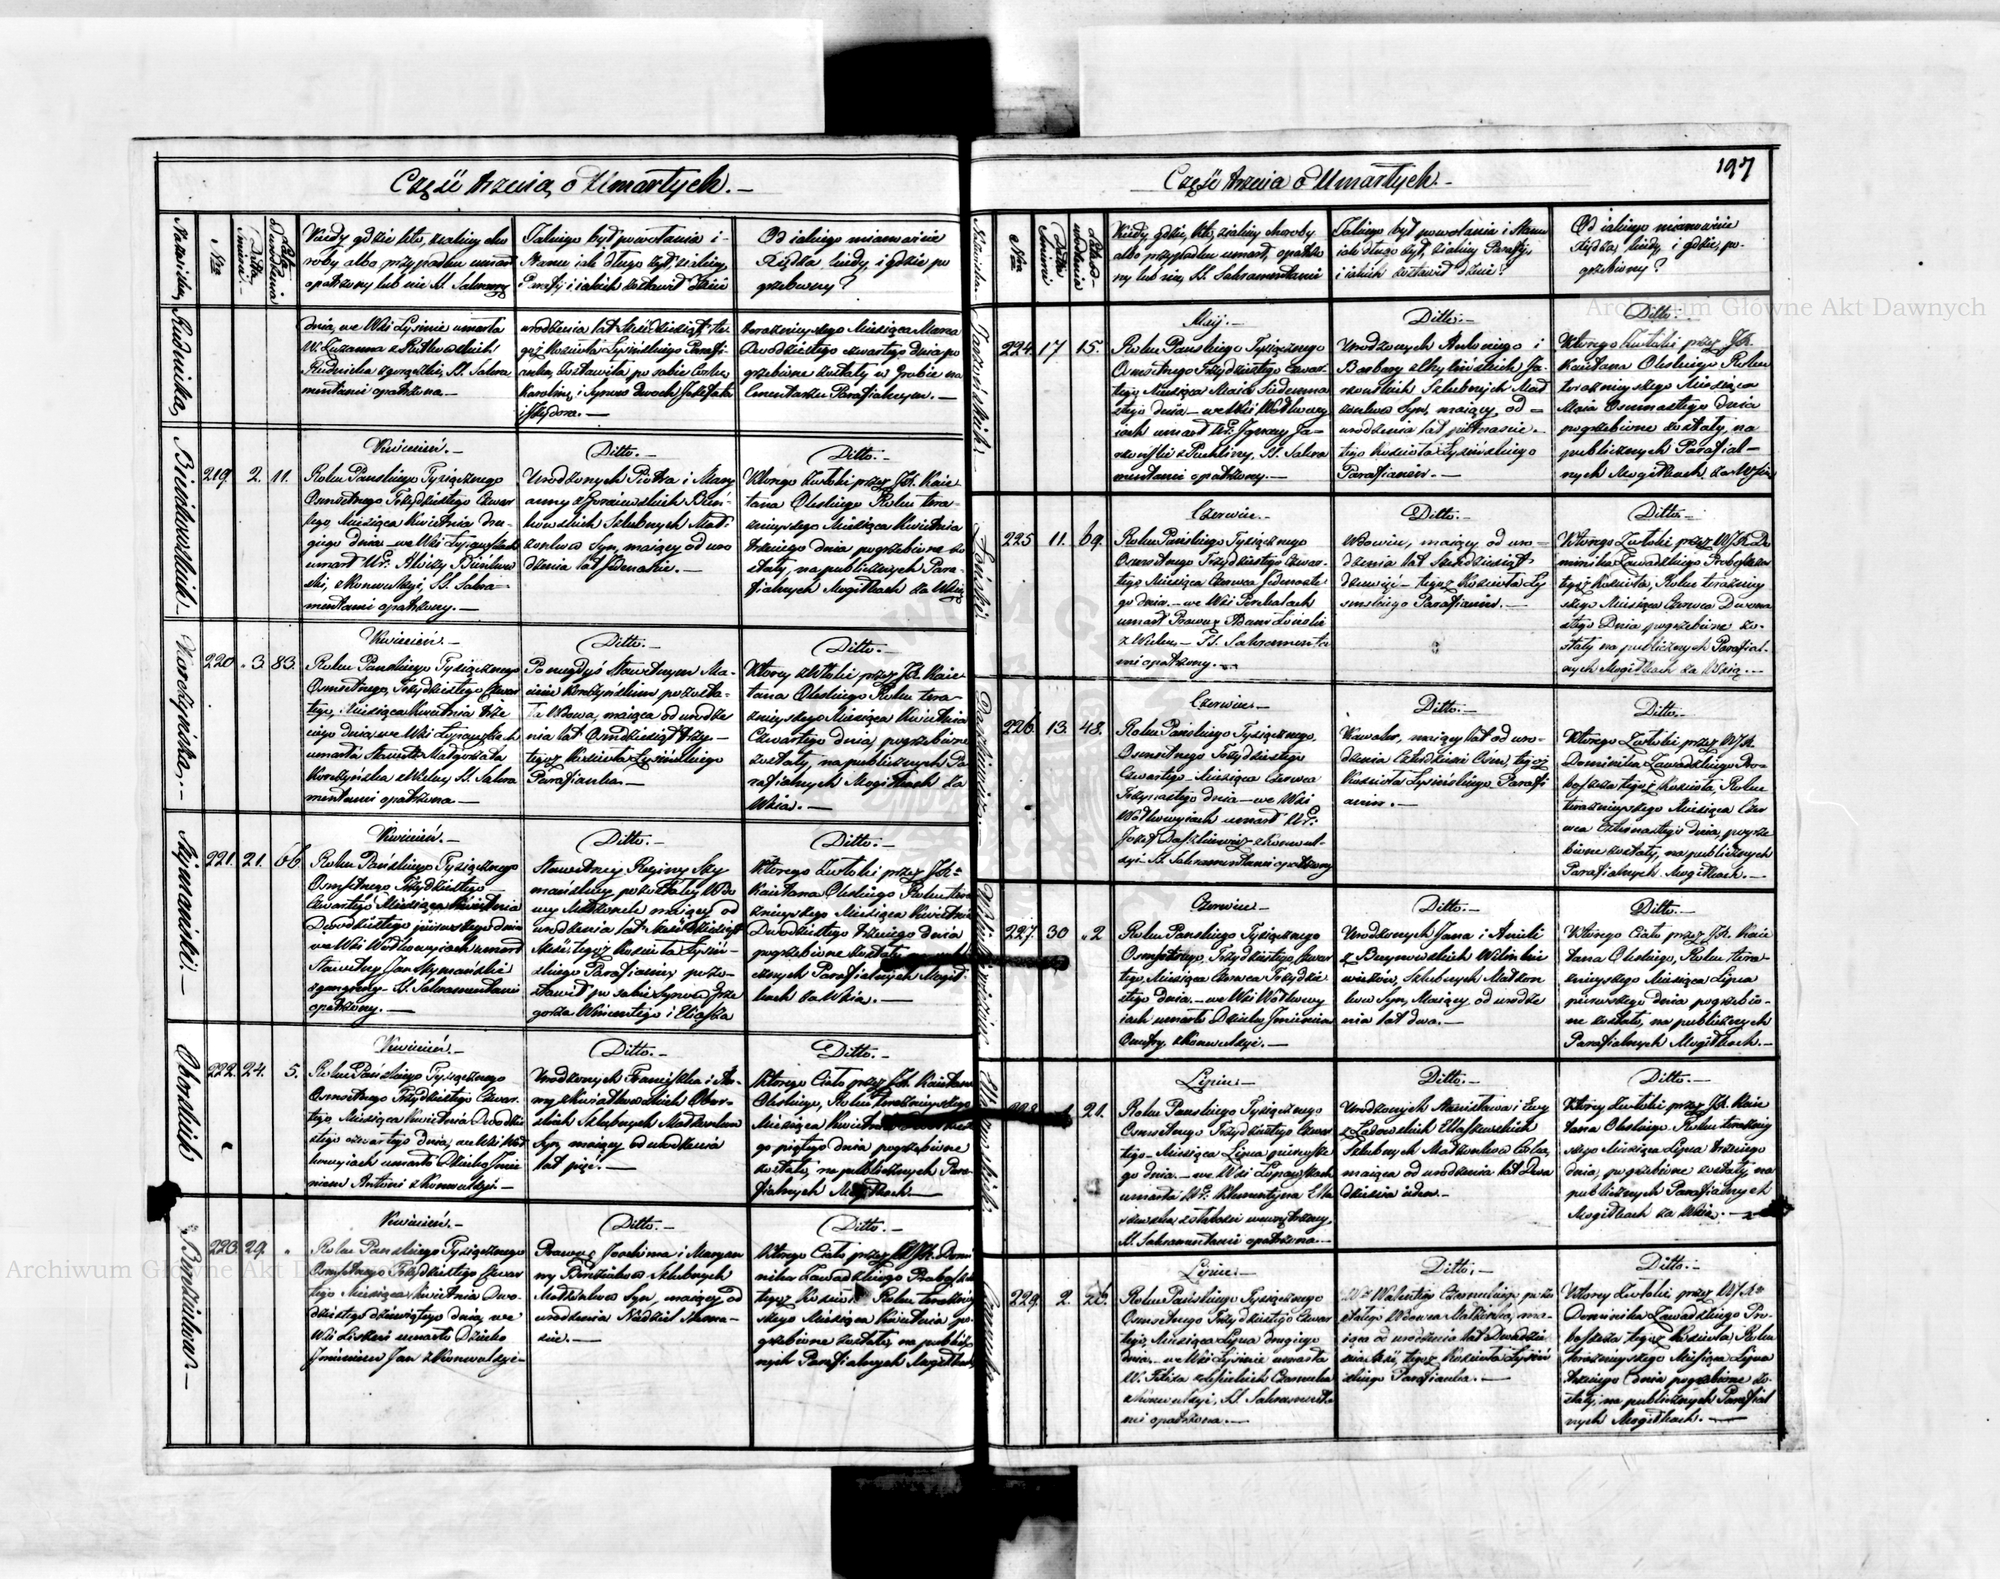 Część trzecia o Umarłych.—
Nazwiska
Nra
Data
Smierci
Lata
Urodzenia
Kiedy gdzie kto, z jakiej cho
roby albo przypadku umarł
opatrzony lub nie SS. Sakramy
Jakiego był powołania i
Stanu iak długo żył, z jakiej
Parafij i iakich zostawił dzieci
Od jakiego mianowicie
Xiędza kiedy, i gdzie po
grzebiony?
Rudnicka
dnia, we Wsi Łysinie umarła
W. Zuzanna z Rutkowskich
Rudnicka z gorączki, SS. Sakra
mentami opatrzona.—
urodzenia lat sześćdziesiąt te-
goż Kościoła Łysińskiego Parafi
anka, zostawiła po sobie Córkę
Karolinę i Synów dwóch Józefata
i Izydora.—
teraznieyszego Miesiąca Marca
Dwodziestego czwartego dnia po
grzebione zostały w Grobie na
Cmentarzu Parafialnym.—
Kwiecień.—
219. 2. 11.
Roku Panskiego Tysiącznego
Osmsetnego Trzydziestego Czwar
tego, Miesiąca Kwietnia dru-
giego dnia—we Wsi Łysowskach
umarł Ur: Aloizy Bieńkow
ski, z Konwulsyi, SS. Sakra-
mentami opatrzony.—
Ditto.—
Urodzonych Piotra i Mary
anny z Bień-
kowskich Szlubnych Mał-
żonków Syn, maiący od uro
dzenia lat Jedenaście.—
Ditto.—
Którego Zwłoki przez JX. Kaie
tana Oleskiego Roku tera-
znieyszego Miesiąca Kwietnia
trzeciego dnia pogrzebione zo
stały, na publicznych Para-
fialnych Mogiłkach za Wsią
Kwiecień.—
220. 3 83.
Roku Panskiego Tysiącznego
Osmsetnego, Trzydziestego Czwar
tego, Miesiąca Kwietnia trze
ciego dnia, we Wsi
umarła Sławetna Małgorzata
SS. Sakra
mentami opatrzona—
Ditto.—
Po niegdyś Sławetnym Ma-
cieiu pozosta-
ła Wdowa, maiąca od urodze
nia lat Osmdziesiąt trzy—
tegoż Kościoła Łysińskiego
Parafianka.—
Ditto.—
Którey zwłoki przez JX. Kaie
tana Oleskiego Roku tera-
znieyszego Miesiąca Kwietnia
Czwartego dnia, pogrzebione
zostały, na publicznych Pa
rafialnych Mogiłkach za
Wsią.—
Szymański.—
Kwiecień.—
221. 21. 66
Roku Pańskiego Tysiącznego
Osmsetnego Trzydziestego—
Czwartego Miesiąca Kwietnia
Dwodziestego pierwszego dnia
we Wsi Wódkowyiach umarł
Sławetny Jan Szymański
z gangreny SS. Sakramentami
opatrzony.—
Ditto.—
Sławetney Reginy Szy
mańskiey, pozostałey Wdo
wy Małżonek maiący od
urodzenia lat Sześćdziesiąt
Sześć, tegoż Kościoła Łysiń-
skiego Parafianin, pozo-
stawił po sobie Synów Grze
gorza Wincentego i Eliasza
Ditto.—
Którego Zwłoki przez JX.
Kaietana Oleskiego Roku tera
znieyszego Miesiąca Kwietnia
Dwodziestego trzeciego dnia
pogrzebione zostały
cznych Parafialnych Mogił-
kach za Wsią.—
Kwiecień.—
222. 24. 5.
Roku Pańskiego Tysiącznego
Osmsetnego Trzydziestego Czwar-
tego, Miesiąca Kwietnia Dwodzie
stego czwartego dnia, we Wsi Wód
kowyiach umarło Dziecko Imie
niem Antoni z Konwulsyi—
Ditto.—
Urodzonych Franciszka i An-
ny z Kwiatkowskich
Szlubnych Małżonków
Syn, maiący od urodzenia
lat pięć.—
Ditto.—
Którego Ciało przez JX. Kaietana
Oleskiego, Roku teraznieyszego
Miesiąca Kwietnia
go piątego dnia pogrzebione
zostało, na publicznych Para-
fialnych Mogiłkach.—
Kwiecień.—
223. 29.
Roku Panskiego Tysiącznego
Osmsetnego Trzydziestego Czwar
tego Miesiąca Kwietnia Dwo-
dziestego dziewiątego dnia, we
Wsi umarło Dziecko
Imieniem Jan z Konwulsyi—
Ditto.—
Pracow: Joachima i Maryan
ny Szlubnych
Małżonków Syn, maiący od
urodzenia Niedziel
Ditto.—
Którego Ciało przez WJX. Domi
nika Zawadzkiego Proboszcza
tegoż Kościoła Roku terazniey
szego Miesiąca Kwietnia
grzebione zostało, na publicz
nych Parafialnych Mogiłkach
Część trzecia o Umarłych.—
197
Nazwiska
Nra
Data
Smierci
Kiedy, gdzie, kto, z jakiey choroby
albo przypadku umarł, opatrzo
ny lub nie, SS. Sakramentami
Jakiego był powołania i Stanu
iak długo żył, z jakiey Parafij,
i iakich zostawił dzieci?
Od iakiego mianowicie
Xiędza, kiedy i gdzie, po-
grzebiony?
Maij.—
224. 17 15.
Roku Panskiego Tysiącznego
Osmsetnego Trzydziestego Czwar-
tego, Miesiąca Maia Siedemna
stego dnia—we Wsi Wódkowy
iach umarł Ur: Ignacy
SS. Sakra
mentami opatrzony.—
Ditto.—
Urodzonych Antoniego i
Barbary
Szlubnych Mał
żonków Syn, maiący, od—
urodzenia lat piętnaście.—
tegoż Kościoła Łysińskiego
Parafianin.—
Ditto.—
Którego Zwłoki przez JX.
Kaietana Oleskiego Roku
teraznieyszego Miesiąca
Maia Osmnastego dnia
pogrzebione zostały, na
publicznych Parafial—
nych Mogiłkach za Wsią
Czerwiec.—
225 11. 69.
Roku Pańskiego Tysiącznego
Osmsetnego Trzydziestego Czwar-
tego Miesiąca Czerwca Jedenaste
go dnia.—we Wsi
umarł Pracow: Adam
SS. Sakramenta
mi opatrzony.—
Ditto.—
Wdowiec, maiący od uro—
dzenia lat Sześćdziesiąt
dziewięć—tegoż Kościoła Ły
sińskiego Parafianin.—
Ditto.—
Którego Zwłoki przez WJX. Do
minika Zawadzkiego Proboszcza
tegoż Kościoła, Roku terazniey
szego Miesiąca Czerwca Dwona
stego Dnia, pogrzebione zo-
stały na publicznych Parafial-
nych Mogiłkach za Wsią.—
Czerwiec.—
226. 13. 48.
Roku Panskiego Tysiącznego,
Osmsetnego Trzydziestego
Czwartego—Miesiąca Czerwca
Trzynastego dnia—we Wsi
Wódkowyiach umarł Ur:
Józef Daszkiewicz z Konwul-
syi SS. Sakramentami opatrzony
Ditto.—
Kawaler, maiący lat od uro-
dzenia Czterdzieści Osm, tegoż
Kościoła Łysińskiego Parafi
anin.—
Ditto.—
Którego Zwłoki przez WJX.
Dominika Zawadzkiego Pro-
boszcza tegoż Kościoła, Roku
teraznieyszego Miesiąca Czer
wca Czternastego dnia, pogrze
bione zostały, na publicznych
Parafialnych Mogiłkach.—
Czerwiec—
227. 30 2
Roku Panskiego Tysiącznego
Osmsetnego, Trzydziestego, Czwar
tego, Miesiąca Czerwca Trzydzie
stego dnia.—we Wsi Wódkowy
iach umarło Dziecko Imieniem
Onufry, z Konwulsyi.—
Ditto.—
Urodzonych Jana i Anieli
z
Szlubnych Małżon
ków Syn, Maiący od urodze
nia lat dwa.—
Ditto.—
Którego Ciało przez JX. Kaie
tana Oleskiego, Roku tera-
znieyszego Miesiąca Lipca
pierwszego dnia pogrzebio-
ne zostało, na publicznych
Parafialnych Mogiłkach.—
Lipiec.—
21.
Roku Panskiego Tysiącznego
Osmsetnego Trzydziestego Czwar
tego—Miesiąca Lipca pierwsze
go dnia.—we Wsi
umarła Ur: Klementyna
z słabości wewnętrzney,
SS. Sakramentami opatrzona.—
Ditto.—
Urodzonych Stanisława i Ewy
z
Szlubnych Małżonków Córka,
maiąca od urodzenia lat Dwa
dzieścia ieden.—
Ditto.—
Którey Zwłoki przez JX. Kaie
tana Oleskiego Roku terazniey
szego Miesiąca Lipca trzeciego
dnia, pogrzebione zostały, na
publicznych Parafialnych
Mogiłkach za Wsią.—
Lipiec.—
229. 2. 26.
Roku Pańskiego Tysiącznego
Osmsetnego Trzydziestego Czwar
tego, Miesiąca Lipca drugiego
dnia.—we Wsi Łysinie umarła
W. Felixa
z Konwulsyi, SS. Sakramenta
mi opatrzona.—
Ditto.—
Walentego pozo
stałego Wdowca Małżonka, ma-
iąca od urodzenia lat Dwadzie
ścia sześć, tegoż Kościoła Łysiń
skiego Parafianka.—
Ditto.—
Którey Zwłoki przez WJX.
Dominika Zawadzkiego Pro-
boszcza tegoż Kościoła, Roku
teraznieyszego Miesiąca Lipca
trzeciego dnia pogrzebione zo
stały, na publicznych Parafial
nych Mogiłkach.—
Archiwum Główne Akt Dawnych
Archiwum Główne Akt Dawnych